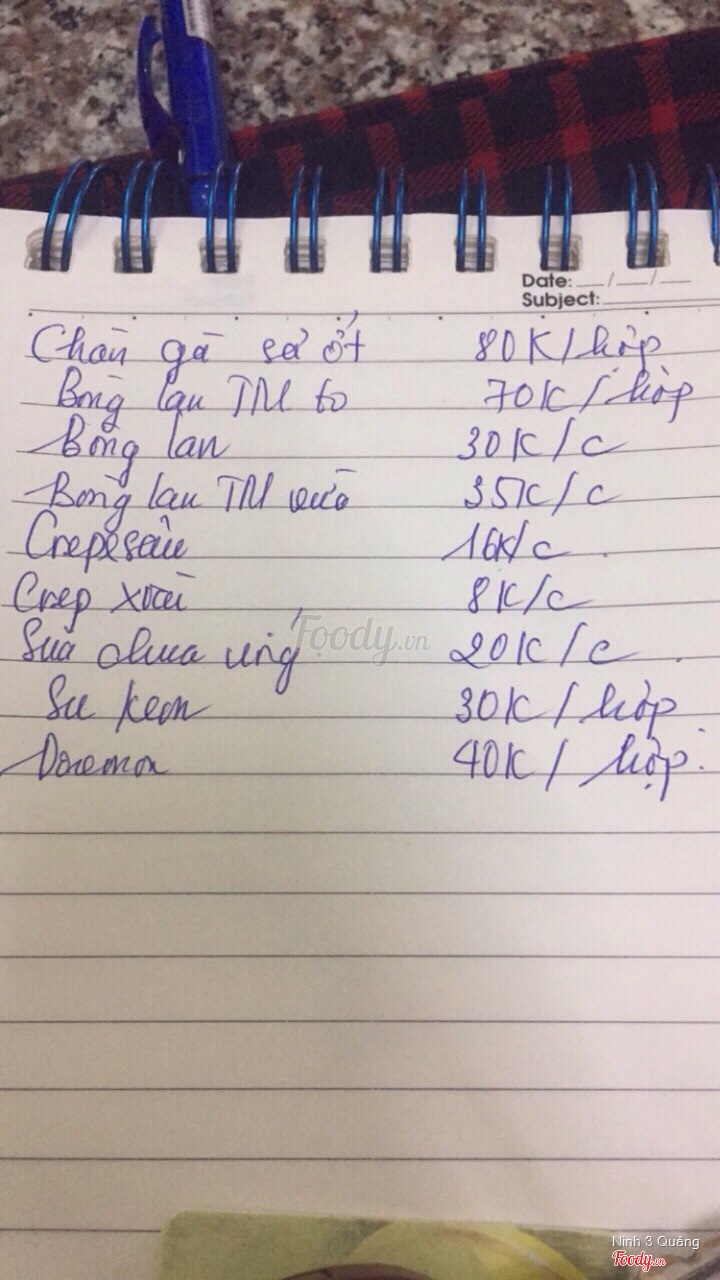 Date: __/__/__
Subject:
Chân gà sả ớt 80K/hộp
Bông lan TM to 70K/hộp
Bông lan 30K/c
Bông lan TM vừa 35K/c
Crepe sầu 16K/c
Crep xoài 8K/c
Sữa chua uống 20K/c
Su kem 30K/hộp
Doremon 40K/hộp
Foody.vn
Ninh 3 Quảng
Foody.vn